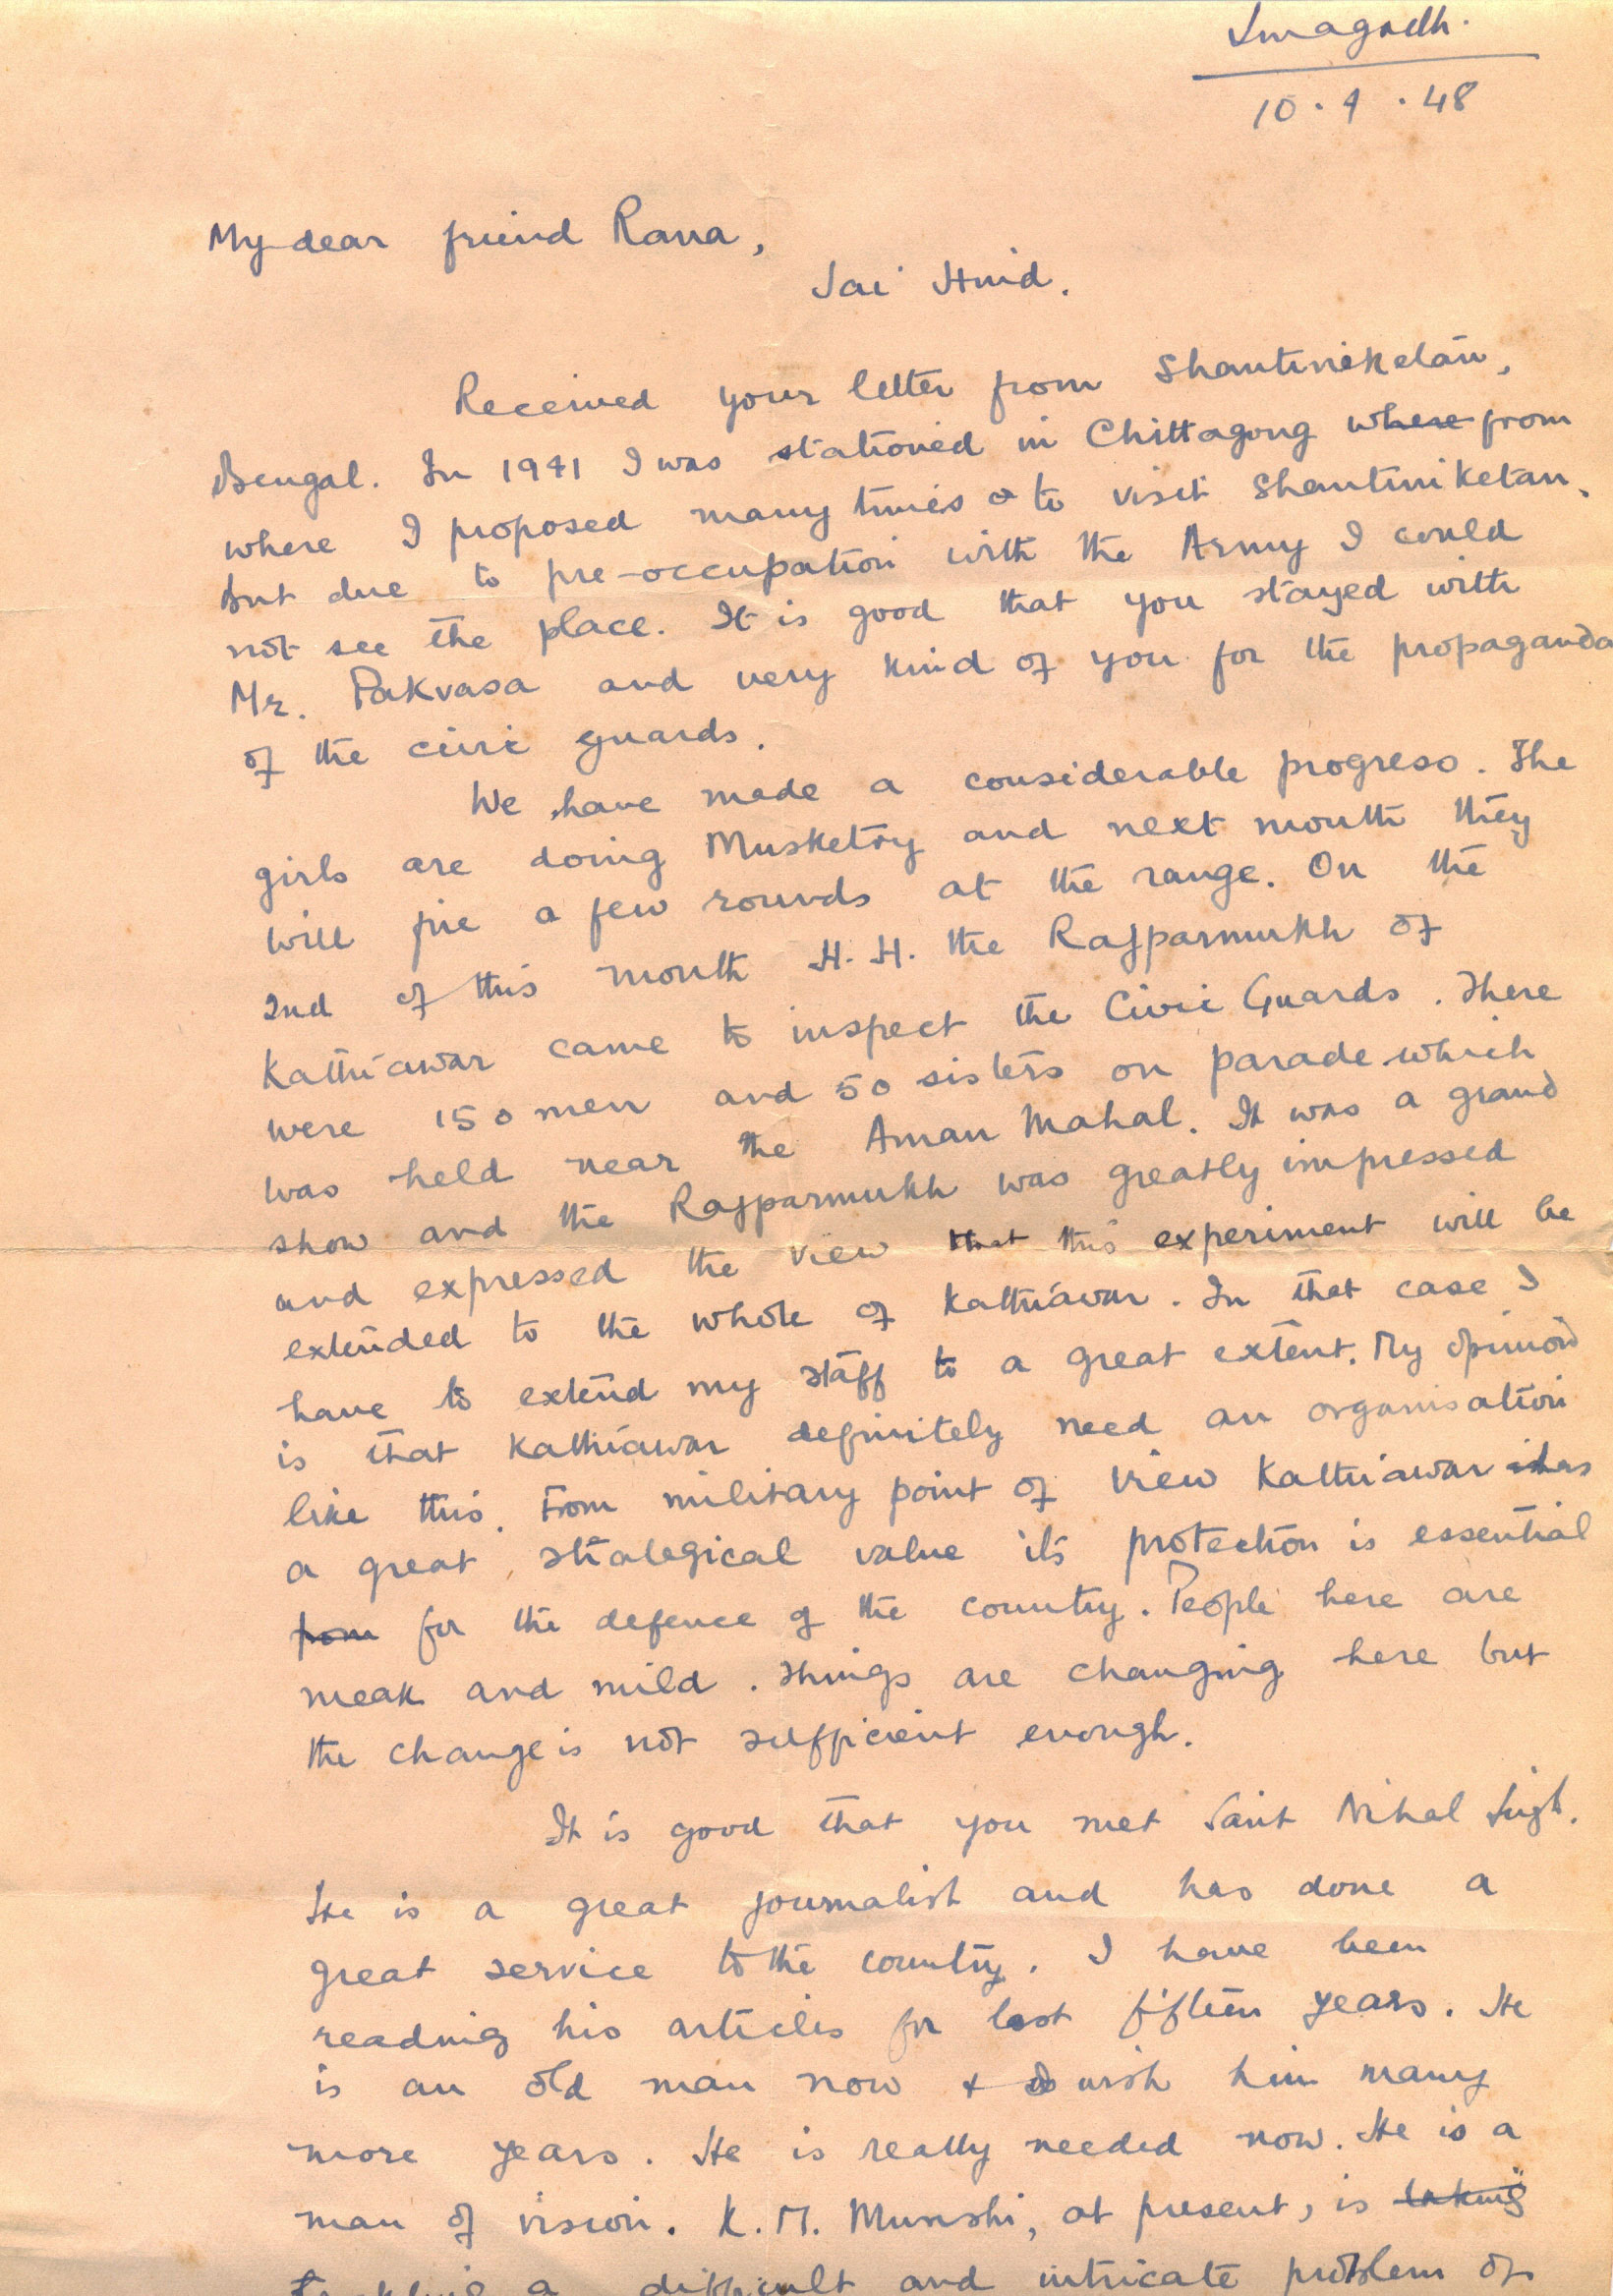 Junagadh.
10.9.48
My dear friend Rana,
Jai Hind.
Received your letter from Shantiniketan,
Bengal. In 1941 I was stationed in Chittagong where from
where I proposed many times to visit Shantiniketan,
but due to pre-occupation with the Army I could
not see the place. It is good that you stayed with
Mr. Pakvasa and very kind of you for the propaganda
of the civic guards.
We have made a considerable progress. The
girls are doing Musketry and next month they
will fire a few rounds at the range. On the
2nd of this month H.H. the Rajparmukh of
Kathiawar came to inspect the Civic Guards. There
were 150 men and 50 sisters on parade which
was held near the Aman Mahal. It was a grand
show and the Rajparmukh was greatly impressed
and expressed the view that this experiment will be
extended to the whole of Kathiawar. In that case I
have to extend my staff to a great extent. My opinion
is that Kathiawar definitely need an organisation
like this. From military point of view Kathiawar has
a great strategical value its protection is essential
from for the defence of the country. People here are
meak and mild. Things are changing here but
the change is not sufficient enough.
It is good that you met Saint Nihal Singh.
He is a great journalist and has done a
great service to the country. I have been
reading his articles for last fifteen years. He
is an old man now & I wish him many
more years. He is really needed now. He is a
man of vision. K.M. Munshi, at present, is taking
tackling a difficult and intricate problem of